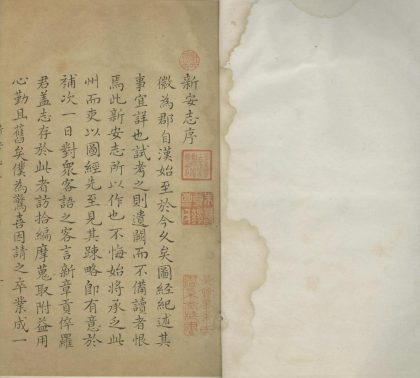 新安志序
徽為郡自漢始至於今久矣圖經紀述其
事宜詳也試考之則遺闕而不備讀者恨
焉此新安志所以作也不悔始將承乏此
州而吏以圖經先至見其踈略即有意於
補次一日對衆客語之客言新章貢倅羅
君盖志存於此者訪拾編摩蒐取附益用
心勤且舊矣僕為驚喜因請之卒業成一